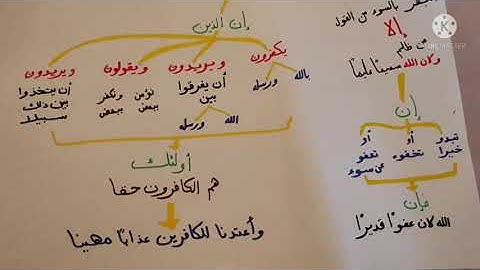 بالسوء من القول
إلا
من ظلم
وكان الله سميعًا عليمًا
إن
تبدو أو أو
خيرا تخفوه تعفو
عن سوء
فإن
الله كان عفوًا قديرًا
إن الذين
يكفرون ويريدون ويقولون ويريدون
بالله ورسله
أن يفرقوا
بين
الله ورسله
نؤمن ونكفر
ببعض ببعض
أن يتخذوا
بين ذلك
سبيلا
أولئك
هم الكافرون حقا
وأعتدنا للكافرين عذابًا مهينا